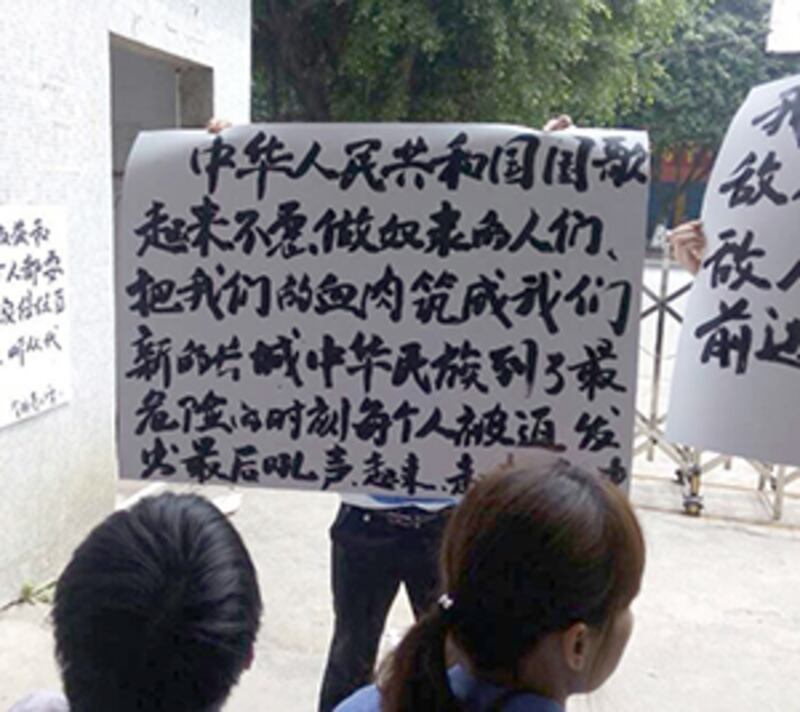 中华人民共和国国歌
起来不愿做奴隶的人们、
把我们的血肉筑成我们
新的长城中华民族到了最
危险的时刻每个人被迫发
出最后吼声、起来、
个人都要
听从代
我
敌
敌人
前进